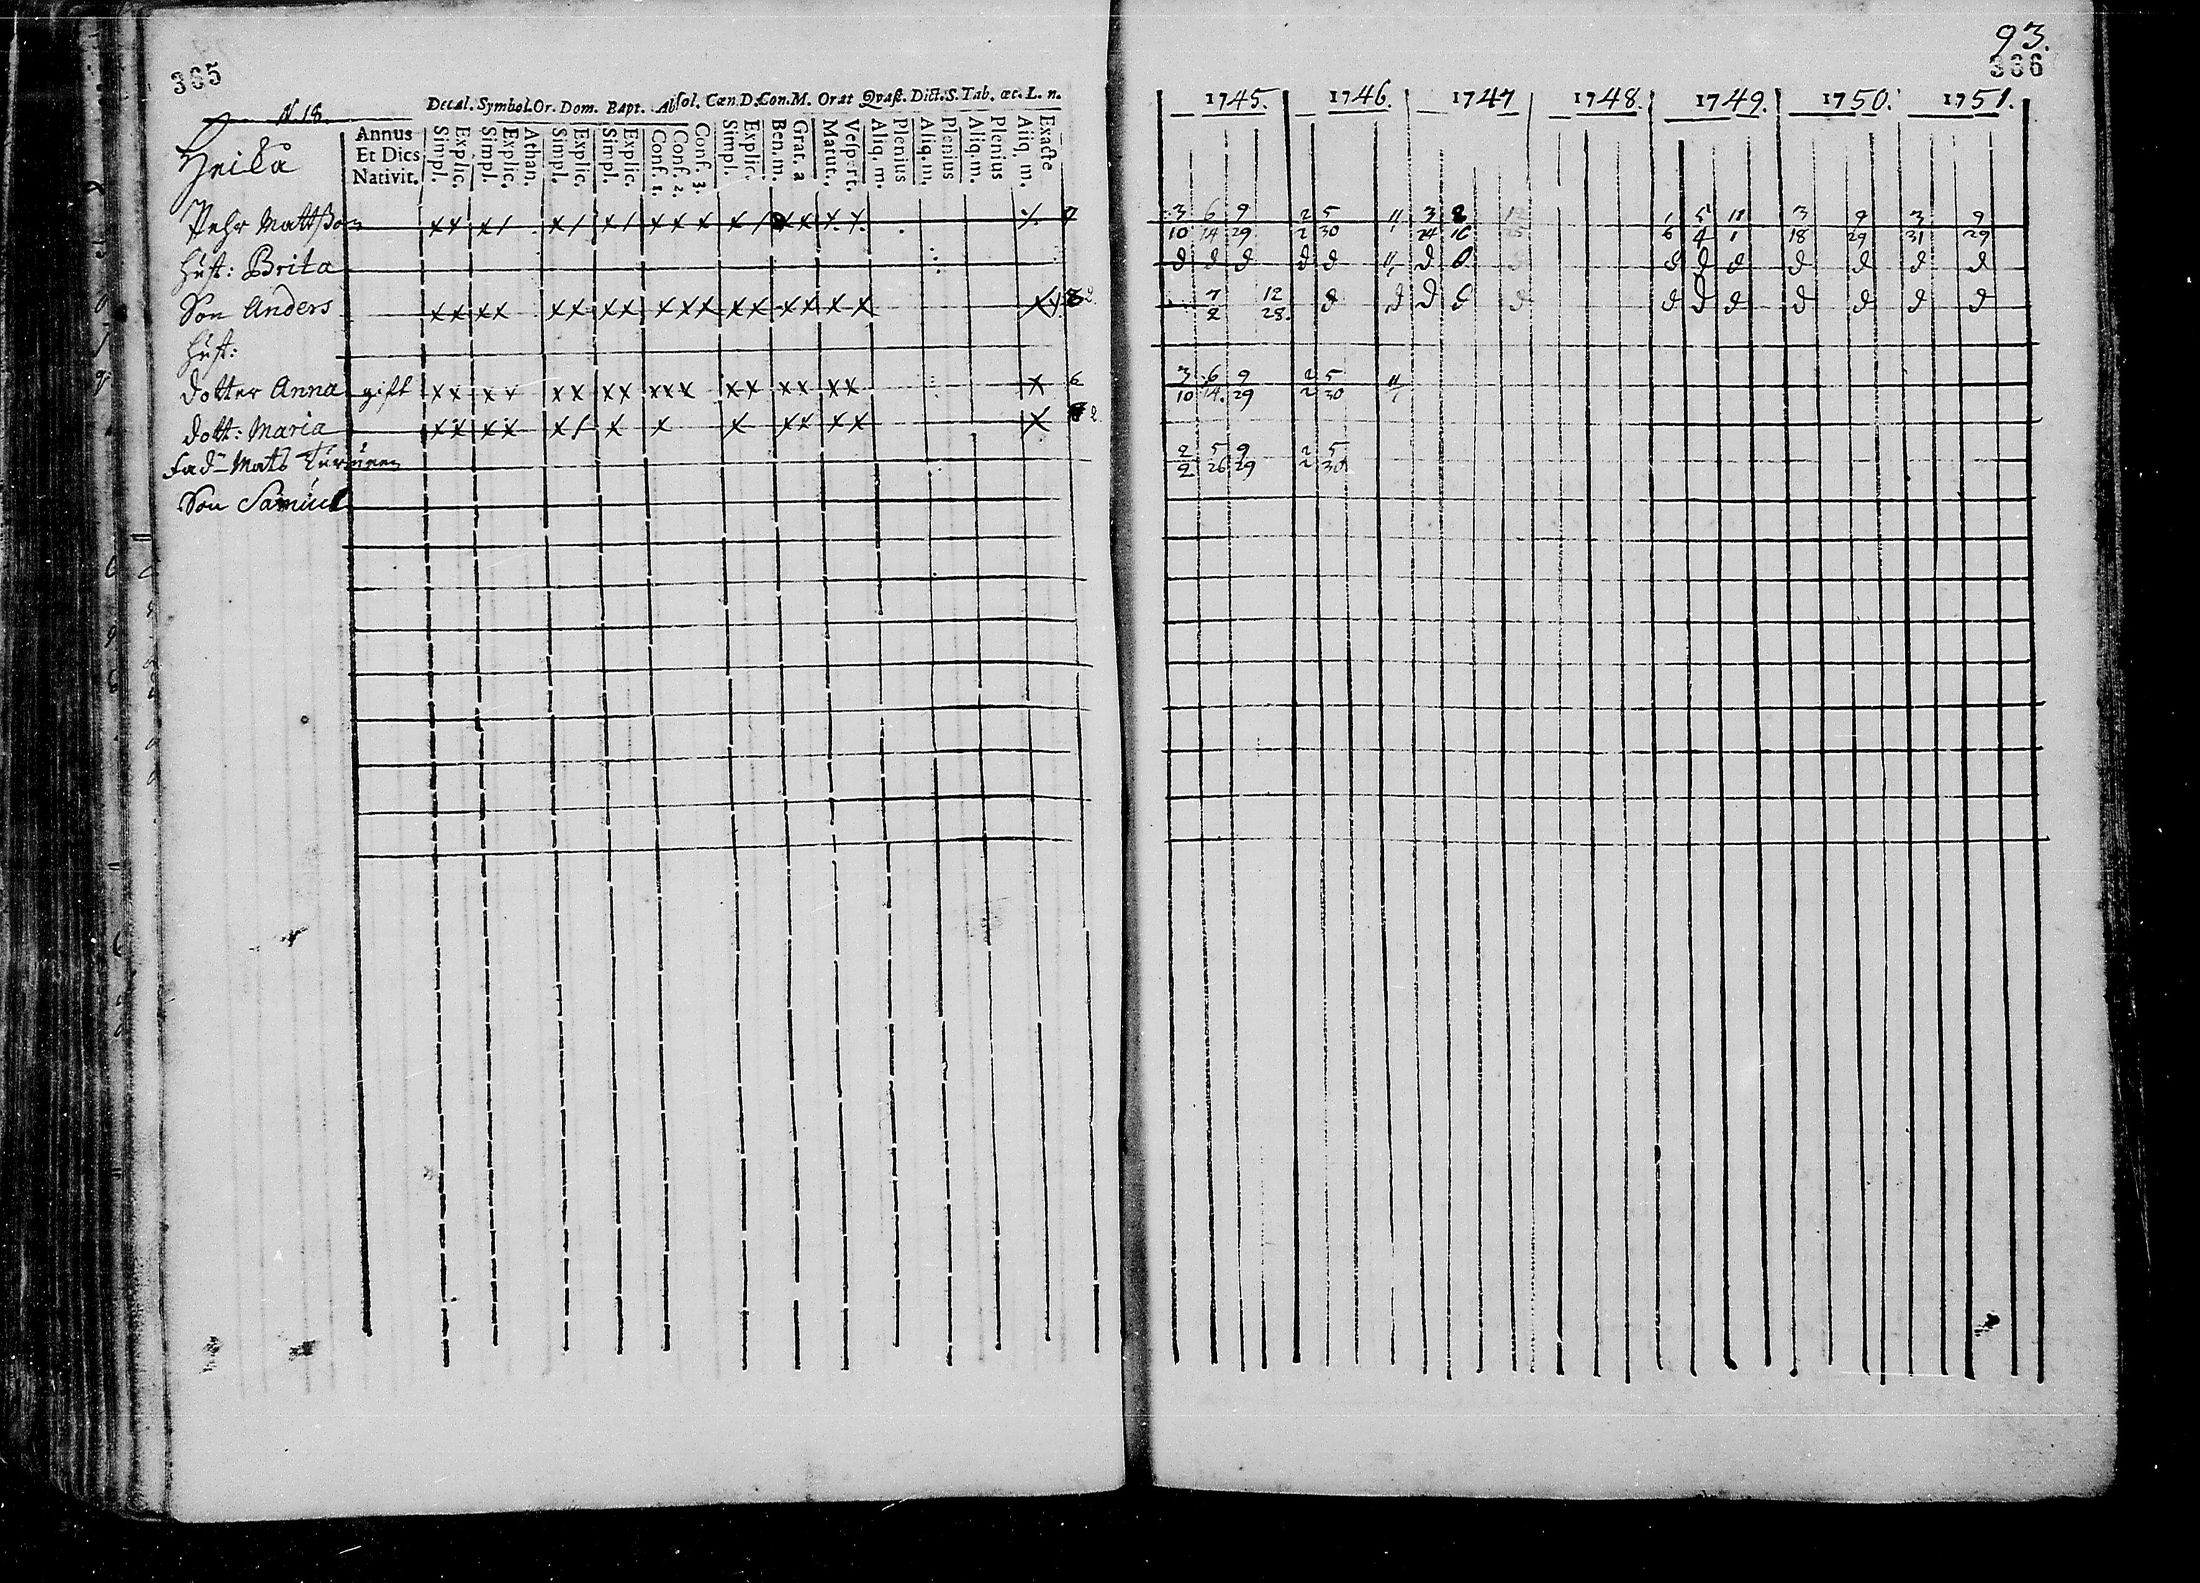 365
N. 18.
Decal. Symbol. Or. Dom. Bapt. Absol. Cœn. D. Con. M. Orat Qvæst. Dict. S. Tab. œc. L. n.
Annus Et Dies Nativit.
Simpl. Explic. Simpl. Explic. Athan. Simpl. Explic. Simpl. Explic. Conf. 1. Conf. 2. Conf. 3. Simpl. Explic. Ben. m. Grat. a Matut. Vesp. rt. Aliq. m. Plenius Aliq. m. Plenius Aliq. m. Plenius Aliq. m. Exacte
Pehr Mattsson
Hust: Brita
Son Anders
Hust:
dotter Anna gift
dott: Maria
Mats
Son Samuel
93.
366
1745. 1746. 1747 1748. 1749. 1750. 1751.
3 6 9 2 5 11 3 8 12 1 5 11 3 9 3 9
10 14 29 2 30 1 24 16 6 4 1 18 29 31 29
d d d d d d d d d d d d d
7 12 d d d d d d d d d d d d
2 28.
3 6 9 2 5 11
10 14. 29 2 30 1
2 5 9 2 5
2 26 29 2 30